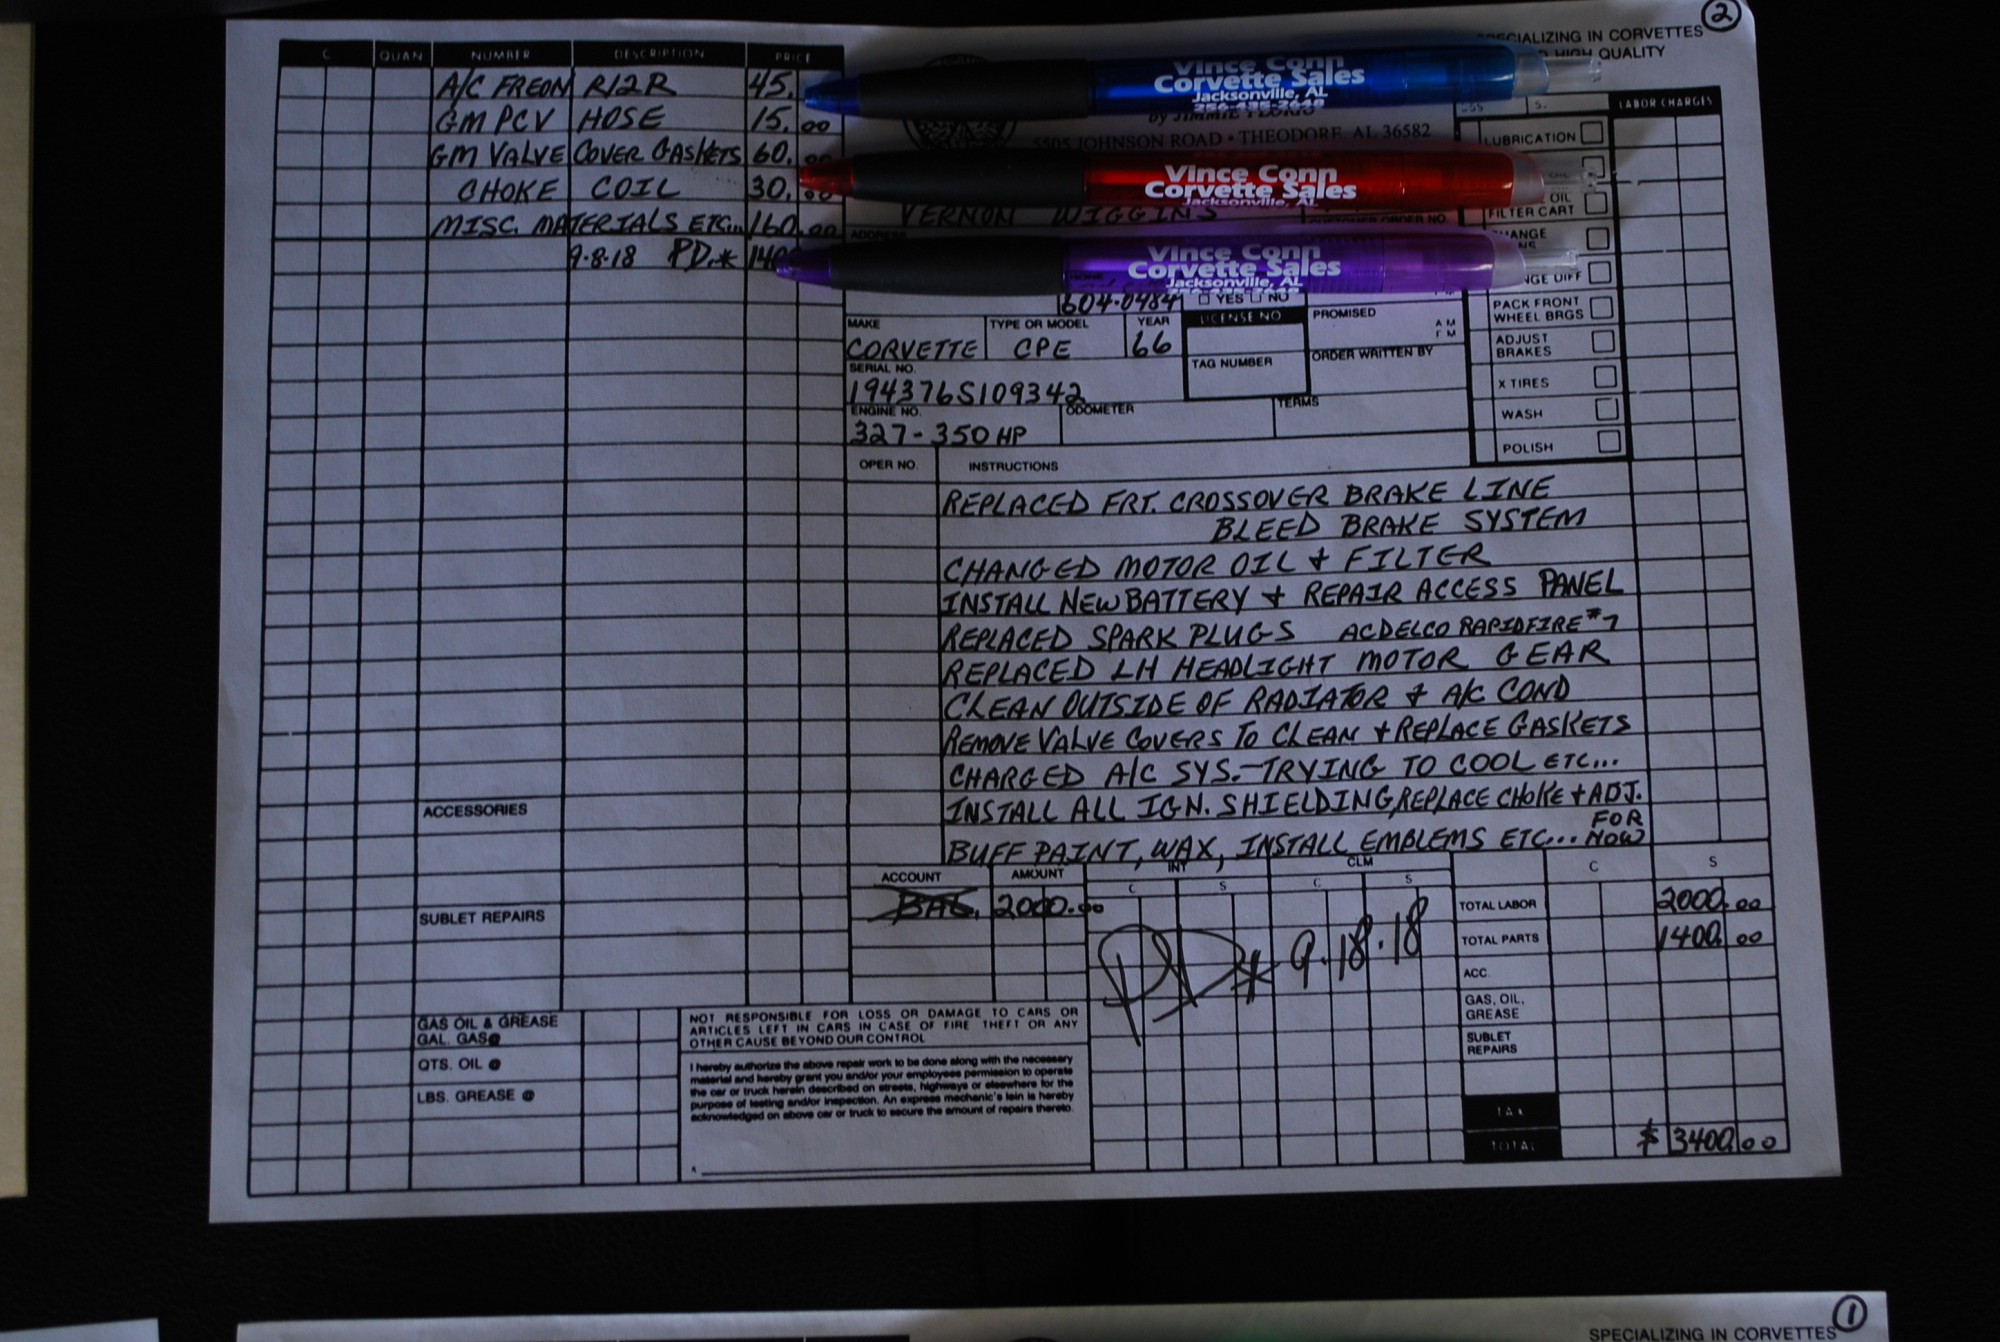 2
SPECIALIZING IN CORVETTES
HIGH QUALITY
C QUAN NUMBER DESCRIPTION PRICE
A/C FREON R12R 45.
GM PCV HOSE 15.00
GM VALVE COVER GASKETS 60.
CHOKE COIL 30.
MISC. MATERIALS ETC... 160.00
9-8-18 PD.*
Vince Conn
Corvette Sales
Jacksonville, AL
256-435-2648
5505 JOHNSON ROAD • THEODORE, AL 36582
Vince Conn
Corvette Sales
Jacksonville, AL
VERNON WIGGINS
CUSTOMER ORDER NO.
ADDRESS
Vince Conn
Corvette Sales
Jacksonville, AL
604-0484 YES NO
MAKE TYPE OR MODEL YEAR LICENSE NO PROMISED AM
CORVETTE CPE 66
SERIAL NO. TAG NUMBER ORDER WRITTEN BY
194376S109342
ENGINE NO. ODOMETER TERMS
327-350 HP
LABOR CHARGES
LUBRICATION
OIL
FILTER CART
PACK FRONT
WHEEL BRGS
ADJUST
BRAKES
X TIRES
WASH
POLISH
OPER NO. INSTRUCTIONS
REPLACED FRT. CROSSOVER BRAKE LINE
BLEED BRAKE SYSTEM
CHANGED MOTOR OIL & FILTER
INSTALL NEW BATTERY & REPAIR ACCESS PANEL
REPLACED SPARK PLUGS ACDELCO RAPIDFIRE #7
REPLACED LH HEADLIGHT MOTOR GEAR
CLEAN OUTSIDE OF RADIATOR & A/C COND
REMOVE VALVE COVERS TO CLEAN & REPLACE GASKETS
CHARGED A/C SYS.-TRYING TO COOL ETC...
INSTALL ALL IGN. SHIELDING, REPLACE CHOKE & ADJ.
FOR
BUFF PAINT, WAX, INSTALL EMBLEMS ETC... NOW
ACCESSORIES
SUBLET REPAIRS
GAS OIL & GREASE
GAL. GAS @
QTS. OIL @
LBS. GREASE @
ACCOUNT AMOUNT INT CLM
C S C S C S
BAL. 2000.00
PD* 9.18.18
TOTAL LABOR 2000.00
TOTAL PARTS 1400.00
ACC.
GAS, OIL,
GREASE
SUBLET
REPAIRS
TAX
TOTAL $ 3400.00
NOT RESPONSIBLE FOR LOSS OR DAMAGE TO CARS OR
ARTICLES LEFT IN CARS IN CASE OF FIRE THEFT OR ANY
OTHER CAUSE BEYOND OUR CONTROL
I hereby authorize the above repair work to be done along with the necessary
material and hereby grant you and/or your employees permission to operate
the car or truck herein described on streets, highways or elsewhere for the
purpose of testing and/or inspection. An express mechanic's lein is hereby
acknowledged on above car or truck to secure the amount of repairs thereto.
1
SPECIALIZING IN CORVETTES